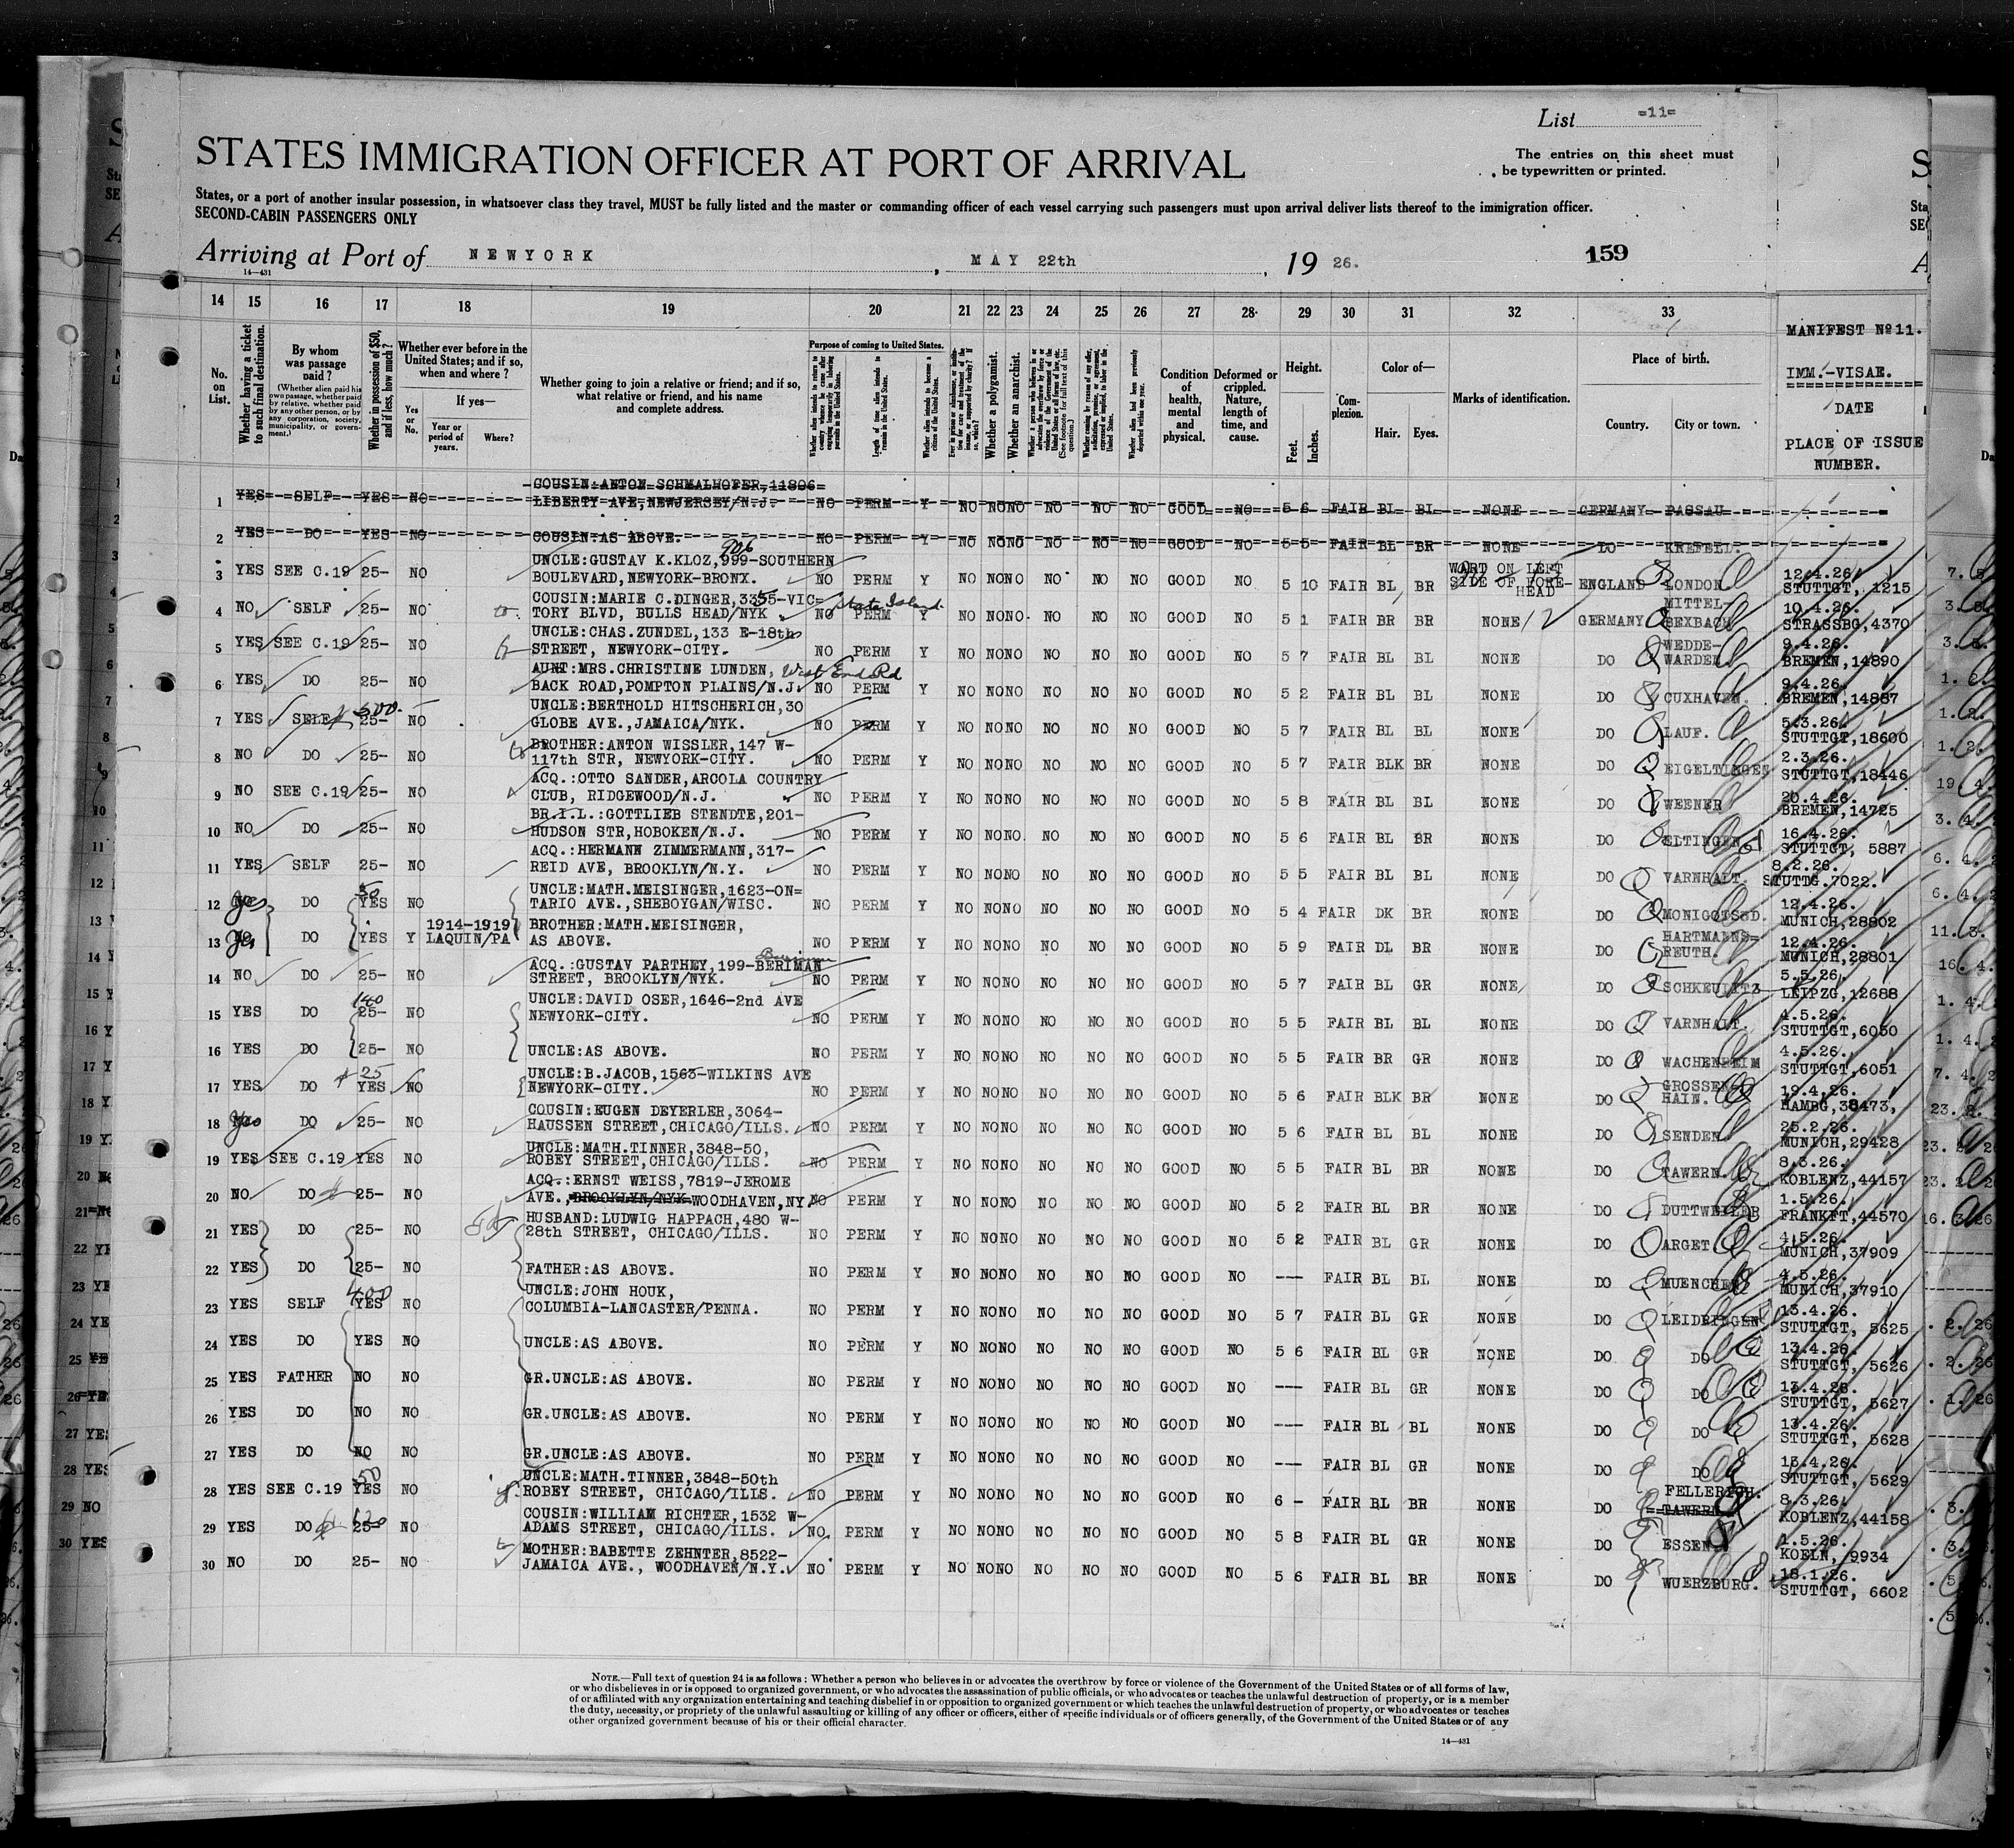 List =11=
STATES IMMIGRATION OFFICER AT PORT OF ARRIVAL
The entries on this sheet must
be typewritten or printed.
States, or a port of another insular possession, in whatsoever class they travel, MUST be fully listed and the master or commanding officer of each vessel carrying such passengers must upon arrival deliver lists thereof to the immigration officer.
SECOND-CABIN PASSENGERS ONLY
Arriving at Port of NEWYORK , MAY 22th , 19 26. 159
14—431
14 15 16 17 18 19 20 21 22 23 24 25 26 27 28 29 30 31 32 33
No. on List.
Whether having a ticket to such final destination.
By whom was passage paid?
(Whether alien paid his own passage, whether paid by relative, whether paid by any other person, or by any corporation, society, municipality, or government.)
Whether in possession of $50, and if less, how much?
Whether ever before in the United States; and if so, when and where?
Yes or No.
If yes—
Year or period of years.
Where?
Whether going to join a relative or friend; and if so, what relative or friend, and his name and complete address.
Purpose of coming to United States.
Length of time alien intends to remain in the United States.
Whether alien intends to become a citizen of the United States.
Whether a polygamist.
Whether an anarchist.
Condition of health, mental and physical.
Deformed or crippled. Nature, length of time, and cause.
Height.
Feet. Inches.
Complexion.
Color of—
Hair. Eyes.
Marks of identification.
Place of birth.
Country. City or town.
MANIFEST No 11.
IMM.-VISAE.
DATE
PLACE OF ISSUE
NUMBER.
COUSIN:ANTON SCHMALHOFER,11806=
1 YES SELF YES NO LIBERTY AVE,NEWJERSEY/N.J. NO PERM Y NO NO NO NO NO NO GOOD NO 5 6 FAIR BL BL NONE GERMANY PASSAU
2 YES DO YES NO COUSIN:AS ABOVE. NO PERM Y NO NO NO NO NO NO GOOD NO 5 5 FAIR BL BR NONE DO KREFELD.
906
UNCLE:GUSTAV K.KLOZ,999-SOUTHERN WART ON LEFT 12.4.26.
3 YES SEE C.19 25- NO BOULEVARD,NEWYORK-BRONX. NO PERM Y NO NO NO NO NO NO GOOD NO 5 10 FAIR BL BR SIDE OF FORE-HEAD ENGLAND LONDON STUTTGT, 1215
COUSIN:MARIE C.DINGER,3355-VIC= State Island MITTEL- 10.4.26.
4 NO SELF 25- NO TORY BLVD, BULLS HEAD/NYK NO PERM Y NO NO NO NO NO NO GOOD NO 5 1 FAIR BR BR NONE GERMANY BEXBACH STRASSBG,4370
UNCLE:CHAS.ZUNDEL,133 E-18th WEDDE- 9.4.26.
5 YES SEE C.19 25- NO STREET, NEWYORK-CITY. NO PERM Y NO NO NO NO NO NO GOOD NO 5 7 FAIR BL BL NONE DO WARDEN BREMEN,14890
AUNT:MRS.CHRISTINE LUNDEN, West End Rd 9.4.26.
6 YES DO 25- NO BACK ROAD,POMPTON PLAINS/N.J. NO PERM Y NO NO NO NO NO NO GOOD NO 5 2 FAIR BL BL NONE DO CUXHAVEN. BREMEN,14887
500.-
UNCLE:BERTHOLD HITSCHERICH,30 5.3.26.
7 YES SELF 25- NO GLOBE AVE.,JAMAICA/NYK. NO PERM Y NO NO NO NO NO NO GOOD NO 5 7 FAIR BL BL NONE DO LAUF. STUTTGT,18600
BROTHER:ANTON WISSLER,147 W- 2.3.26.
8 NO DO 25- NO 117th STR, NEWYORK-CITY. NO PERM Y NO NO NO NO NO NO GOOD NO 5 7 FAIR BLK BR NONE DO EIGELTINGEN STUTTGT,18446
ACQ.:OTTO SANDER,ARCOLA COUNTRY 20.4.26.
9 NO SEE C.19 25- NO CLUB, RIDGEWOOD/N.J. NO PERM Y NO NO NO NO NO NO GOOD NO 5 8 FAIR BL BL NONE DO WEENER BREMEN,14725
BR.I.L.:GOTTLIEB STENDTE,201- 16.4.26.
10 NO DO 25- NO HUDSON STR,HOBOKEN/N.J. NO PERM Y NO NO NO NO NO NO GOOD NO 5 6 FAIR BL BR NONE DO ELTINGEN STUTTGT, 5887
ACQ.:HERMANN ZIMMERMANN,317- 8.2.26.
11 YES SELF 25- NO REID AVE, BROOKLYN/N.Y. NO PERM Y NO NO NO NO NO NO GOOD NO 5 5 FAIR BL BL NONE DO VARNHALT. STUTTG.7022.
50
UNCLE:MATH.MEISINGER,1623-ON= 12.4.26.
12 Yes DO YES NO TARIO AVE.,SHEBOYGAN/WISC. NO PERM Y NO NO NO NO NO NO GOOD NO 5 4 FAIR DK BR NONE DO MONIGOTSOD. MUNICH,28802
1914-1919 BROTHER:MATH.MEISINGER, HARTMANNS= 12.4.26.
13 Yes DO YES Y LAQUIN/PA AS ABOVE. NO PERM Y NO NO NO NO NO NO GOOD NO 5 9 FAIR DL BR NONE DO REUTH. MUNICH,28801
ACQ.:GUSTAV PARTHEY,199-BERIMAN 5.5.26.
14 NO DO 25- NO STREET, BROOKLYN/NYK. NO PERM Y NO NO NO NO NO NO GOOD NO 5 7 FAIR BL GR NONE DO SCHKEUDITZ LEIPZG,12688
140
UNCLE:DAVID OSER,1646-2nd AVE 4.5.26.
15 YES DO 25- NO NEWYORK-CITY. NO PERM Y NO NO NO NO NO NO GOOD NO 5 5 FAIR BL BL NONE DO VARNHALT. STUTTGT,6050
4.5.26.
16 YES DO 25- NO UNCLE:AS ABOVE. NO PERM Y NO NO NO NO NO NO GOOD NO 5 5 FAIR BR GR NONE DO WACHENHEIM STUTTGT,6051
25
UNCLE:B.JACOB,1563-WILKINS AVE GROSSEN- 19.4.26.
17 YES DO YES NO NEWYORK-CITY. NO PERM Y NO NO NO NO NO NO GOOD NO 5 6 FAIR BLK BR NONE DO HAIN. HAMBG,38473,
COUSIN:EUGEN DEYERLER,3064- 25.2.26.
18 Yes DO 25- NO HAUSSEN STREET,CHICAGO/ILLS. NO PERM Y NO NO NO NO NO NO GOOD NO 5 6 FAIR BL BL NONE DO SENDEN MUNICH,29428
UNCLE:MATH.TINNER,3848-50, 8.3.26.
19 YES SEE C.19 YES NO ROBEY STREET,CHICAGO/ILLS. NO PERM Y NO NO NO NO NO NO GOOD NO 5 5 FAIR BL BR NONE DO TAWERN. KOBLENZ,44157
ACQ.:ERNST WEISS,7819-JEROME 1.5.26.
20 NO DO 25- NO AVE.,BROOKLYN/NYK WOODHAVEN,NY. NO PERM Y NO NO NO NO NO NO GOOD NO 5 2 FAIR BL BR NONE DO DUTTWEILER FRANKFT,44570
HUSBAND:LUDWIG HAPPACH,480 W- 4.5.26.
21 YES DO 25- NO 28th STREET, CHICAGO/ILLS. NO PERM Y NO NO NO NO NO NO GOOD NO 5 2 FAIR BL GR NONE DO ARGET MUNICH,37909
4.5.26.
22 YES DO 25- NO FATHER:AS ABOVE. NO PERM Y NO NO NO NO NO NO GOOD NO --- FAIR BL BL NONE DO MUENCHEN MUNICH,37910
400
UNCLE:JOHN HOUK, 13.4.26.
23 YES SELF YES NO COLUMBIA-LANCASTER/PENNA. NO PERM Y NO NO NO NO NO NO GOOD NO 5 7 FAIR BL GR NONE DO LEIDRINGEN STUTTGT, 5625
13.4.26.
24 YES DO YES NO UNCLE:AS ABOVE. NO PERM Y NO NO NO NO NO NO GOOD NO 5 6 FAIR BL GR NONE DO DO STUTTGT, 5626
13.4.26.
25 YES FATHER NO NO GR.UNCLE:AS ABOVE. NO PERM Y NO NO NO NO NO NO GOOD NO --- FAIR BL GR NONE DO DO STUTTGT, 5627
13.4.26.
26 YES DO NO NO GR.UNCLE:AS ABOVE. NO PERM Y NO NO NO NO NO NO GOOD NO --- FAIR BL BL NONE DO DO STUTTGT, 5628
13.4.26.
27 YES DO NO NO GR.UNCLE:AS ABOVE. NO PERM Y NO NO NO NO NO NO GOOD NO --- FAIR BL GR NONE DO DO STUTTGT, 5629
50
UNCLE:MATH.TINNER,3848-50th FELLERICH. 8.3.26.
28 YES SEE C.19 YES NO ROBEY STREET, CHICAGO/ILLS. NO PERM Y NO NO NO NO NO NO GOOD NO 6 - FAIR BL BR NONE DO TAWERN KOBLENZ,44158
COUSIN:WILLIAM RICHTER,1532 W- 1.5.26.
29 YES DO 25- NO ADAMS STREET, CHICAGO/ILLS. NO PERM Y NO NO NO NO NO NO GOOD NO 5 8 FAIR BL GR NONE DO ESSEN KOELN, 9934
MOTHER:BABETTE ZEHNTER,8522- 18.1.26.
30 NO DO 25- NO JAMAICA AVE., WOODHAVEN/N.Y. NO PERM Y NO NO NO NO NO NO GOOD NO 5 6 FAIR BL BR NONE DO WUERZBURG. STUTTGT, 6602
NOTE.—Full text of question 24 is as follows: Whether a person who believes in or advocates the overthrow by force or violence of the Government of the United States or of all forms of law,
or who disbelieves in or is opposed to organized government, or who advocates the assassination of public officials, or who advocates or teaches the unlawful destruction of property, or is a member
of or affiliated with any organization entertaining and teaching disbelief in or opposition to organized government or which teaches the unlawful destruction of property, or who advocates or teaches
the duty, necessity, or propriety of the unlawful assaulting or killing of any officer or officers, either of specific individuals or of officers generally, of the Government of the United States or of any
other organized government because of his or their official character.
14—431